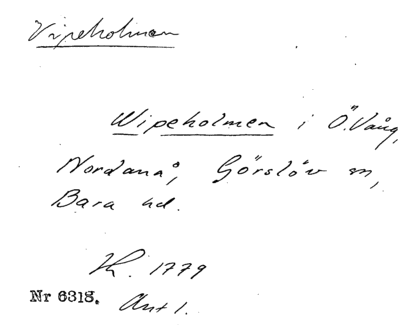 Vipeholmen
Wipeholmen i Ö. Vång,
Nordanå, Görslöv sn,
Bara hd.
Th. 1779
Nr 6318. Akt 1.